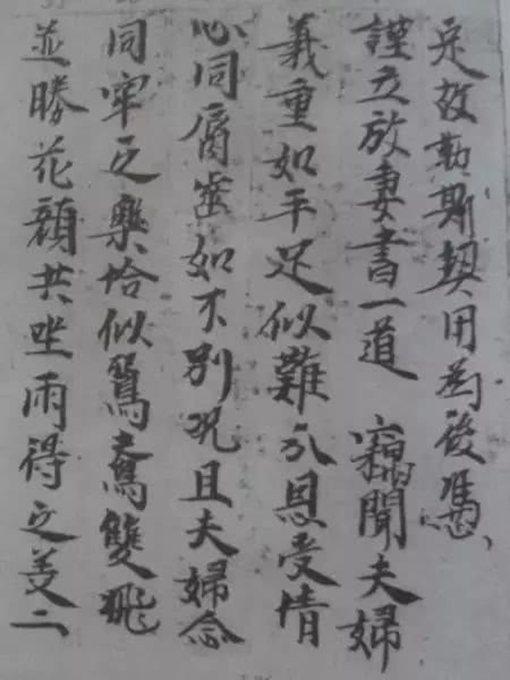 定故勒斯契用為後憑
謹立放妻書一道 竊聞夫婦
義重如平足似難分恩受情
心同脣齒如不別況且夫婦念
同牢之樂恰似鴛鴦雙飛
並勝花顏共坐兩得之美二